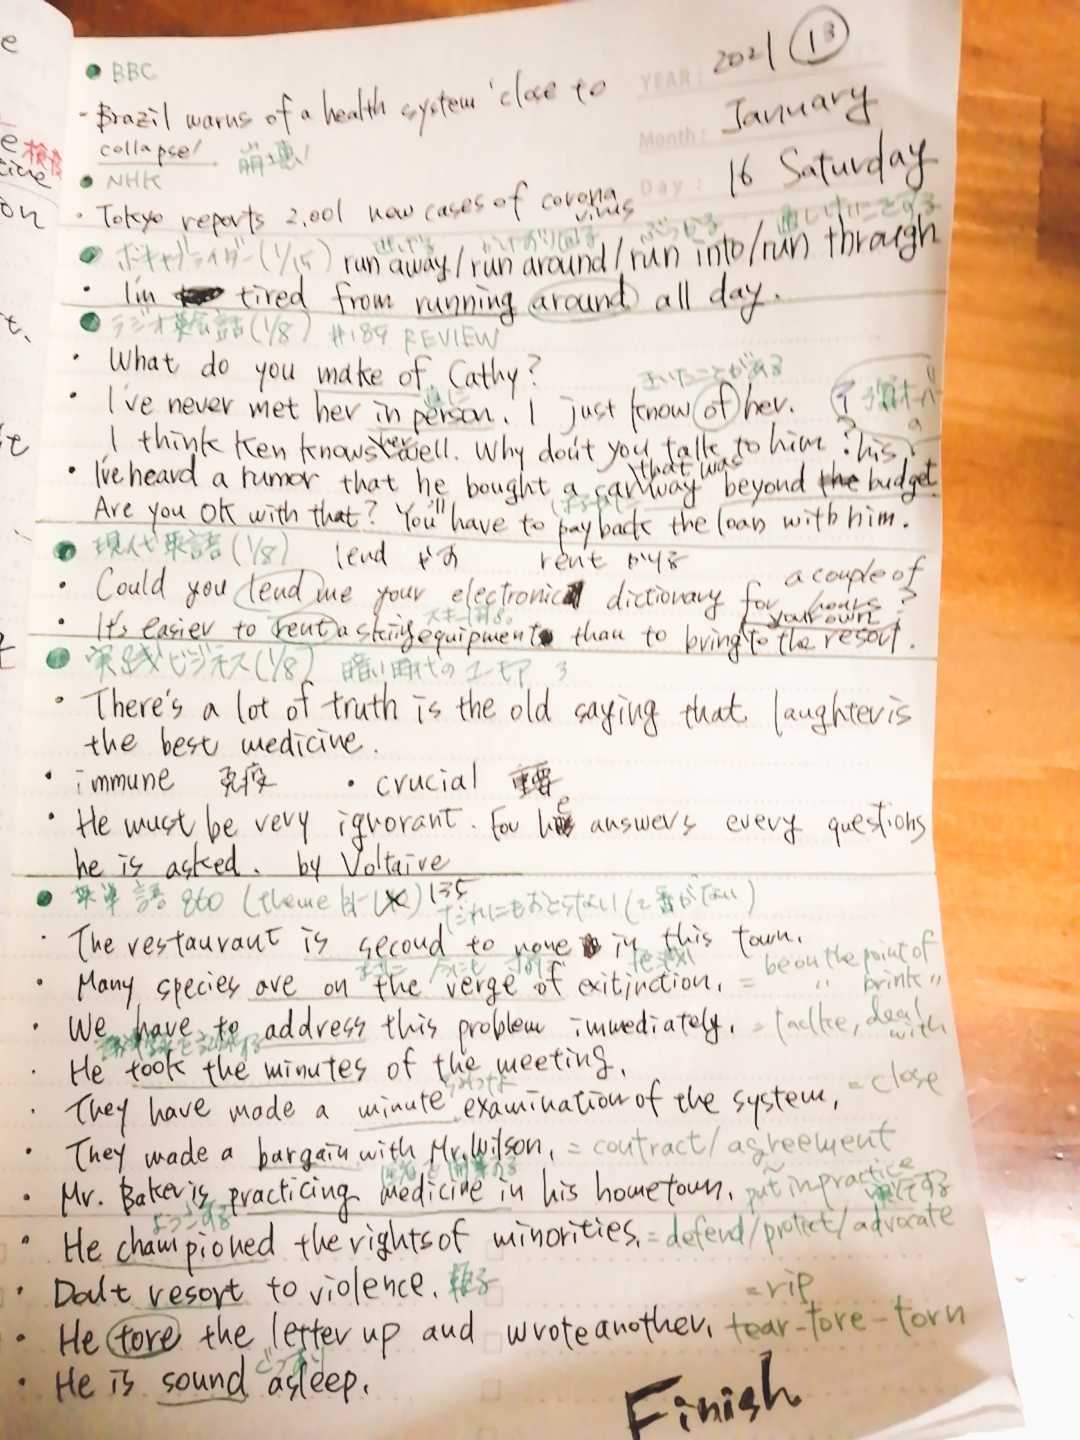 2021 13
YEAR:
January
Month:
16 Saturday
Day:
• BBC
- Brazil warns of a health system 'close to
collapse! 崩壊!
• NHK
• Tokyo reports 2,001 new cases of corona
virus
逃げる かけずり回る ぶつかる
• ボキャブライダー (1/15) run away / run around / run into / run through
• I'm tired from running around all day.
• ラジオ英会話 (1/8) #189 REVIEW
• What do you make of Cathy?
• I've never met her in person. I just know of her.
I think Ken knows her well. Why don't you talk to him?
• I've heard a rumor that he bought a car that was way beyond his budget.
Are you OK with that? You'll have to pay back the loan with him.
• 現代英語 (1/8) lend rent かりる
• Could you lend me your electronic dictionary for a couple of
hours?
• It's easier to rent a skiing equipment than to bring your own
to the resort.
• 実践ビジネス (1/8) 暗い時代のユーモア 3
• There's a lot of truth is the old saying that laughter is
the best medicine.
• immune 免疫 • crucial 重要
• He must be very ignorant. For he answers every questions
he is asked. by Voltaire
• 英単語 860 (theme 135
だれにもおとらない (2番がない)
• The restaurant is second to none in this town.
• Many species are on the verge of exitinction. = be on the point of
" brink "
• We have to address this problem immediately. = tackle, deal
with
• He took the minutes of the meeting.
• They have made a minute examination of the system, = close
• They made a bargain with Mr. Wilson, = contract / agreement
• Mr. Baker is practicing medicine in his hometown. put in practice
ようごする
• He championed the rights of minorities. = defend / protect / advocate
• Don't resort to violence.
= rip
• He tore the letter up and wrote another. tear - tore - torn
ぐっすり
• He is sound asleep.
Finish